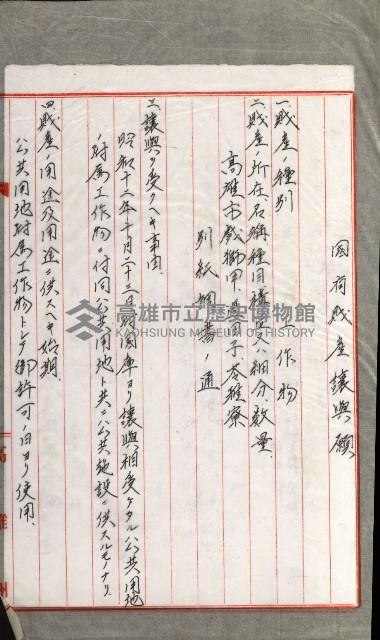 國有財産讓與願
一、財産ノ種別
工作物
二、財産ノ所在名稱種目構造又ハ細分數量
高雄市戲獅甲、過田子、苓雅寮
別紙調書ノ通
三、讓與ヲ受クヘキ事由
昭和十二年十月二十三日國庫ヨリ讓與相受ケタル公共用地
ノ附属工作物ニ付同公共用地ト共ニ公共施設ニ供スルモノナリ
四、財産ノ用途及用途ニ供スヘキ始期
公共用地附属工作物トシテ御許可ノ日ヨリ使用
高雄市立歷史博物館
KAOHSIUNG MUSEUM OF HISTORY
高雄州